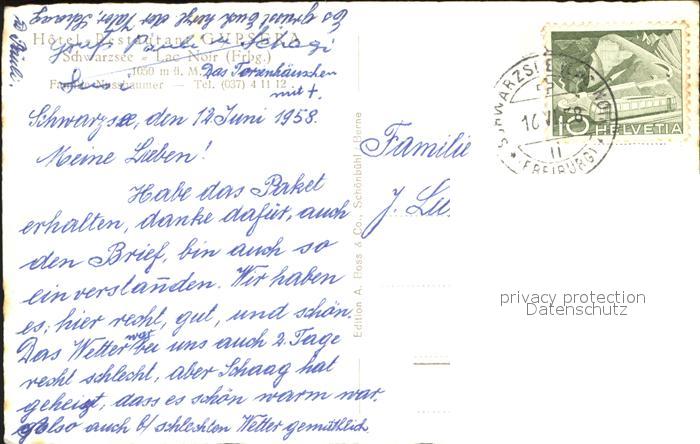 Es grüsst Euch herzl. der Vater, Schaag
Hôtel-Restaurant GYPSERA
Schwarzsee - Lac Noir (Frbg.)
1050 m ü. M.
Das
mit +.
Nussbaumer - Tel. (037) 4 11 12
Schwarzsee, den 12. Juni 1958.
Meine Lieben!
Habe das Paket
erhalten, danke dafür, auch
den Brief, bin auch so
einverstanden. Wir haben
es, hier recht, gut, und schön
Das Wetter war bei uns auch 2. Tage
recht schlecht, aber Schaag hat
geheizt, dass es schön warm war.
Also auch b/ schlechten Wetter gemütlich
Edition A. Boss & Co., Schönbühl / Berne
Familie
J. Lu
SCHWARZSEE
(FREIBURG)
10 HELVETIA
privacy protection
Datenschutz